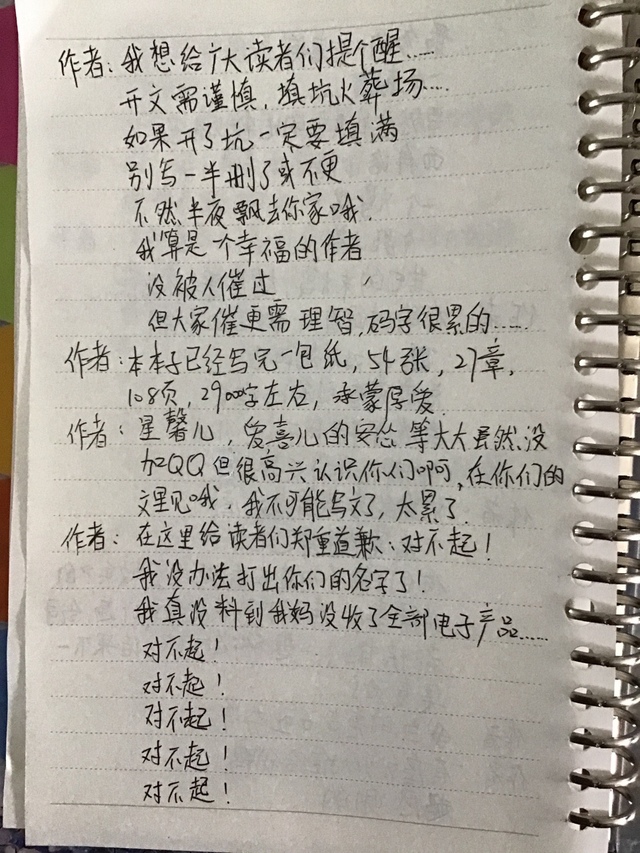 作者：我想给广大读者们提个醒……
开文需谨慎，填坑火葬场……
如果开了坑一定要填满
别写一半删了或不更
不然半夜飘去你家哦.
我算是一个幸福的作者
没被人催过
但大家催更需理智，码字很累的……
作者：本本子已经写完一包纸，54张，27章，
108页，29000字左右，承蒙厚爱.
作者：星馨儿，爱喜儿的安怂等大大虽然没
加QQ但很高兴认识你们啊，在你们的
文里见哦.我不可能写文了，太累了.
作者：在这里给读者们郑重道歉：对不起！
我没办法打出你们的名字了！
我真没料到我妈没收了全部电子产品……
对不起！
对不起！
对不起！
对不起！
对不起！